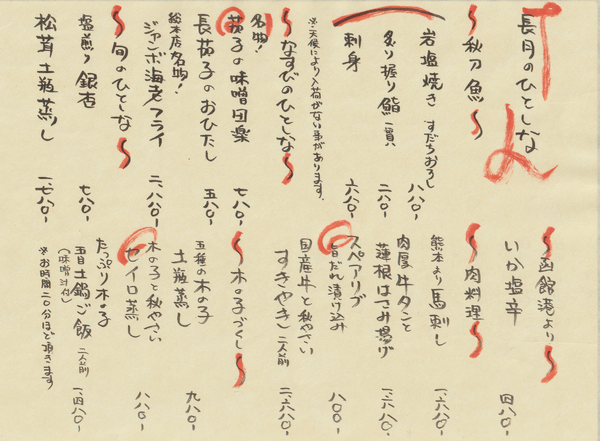 長月のひとしな
〜秋刀魚〜
岩塩焼き すだちおろし 八八〇-
炙り握り鮨 一貫 二八〇-
刺身 六八〇-
※天候により入荷がない事があります。
〜なすびのひとしな〜
名物!
茄子の味噌田楽 七八〇-
長茄子のおひたし 五八〇-
総本店名物!
ジャンボ海老フライ 二、八八〇-
〜旬のひとしな〜
塩煎り銀杏 七八〇-
松茸土瓶蒸し 一、七八〇-
〜函館港より〜
いか塩辛 四八〇-
〜肉料理〜
熊本より馬刺し 一、六八〇-
肉厚牛タンと
蓮根はさみ揚げ 一、六八〇-
スペアリブ
旨だれ漬け込み 八〇〇-
国産牛と秋やさい
すきやき 二人前 二、六八〇-
〜木の子づくし〜
五種の木の子
土瓶蒸し 九八〇-
木の子と秋やさい
セイロ蒸し 八八〇-
たっぷり木の子
五目土鍋ご飯 二人前 一、四八〇-
(味噌汁付)
※お時間二〇分ほど頂きます